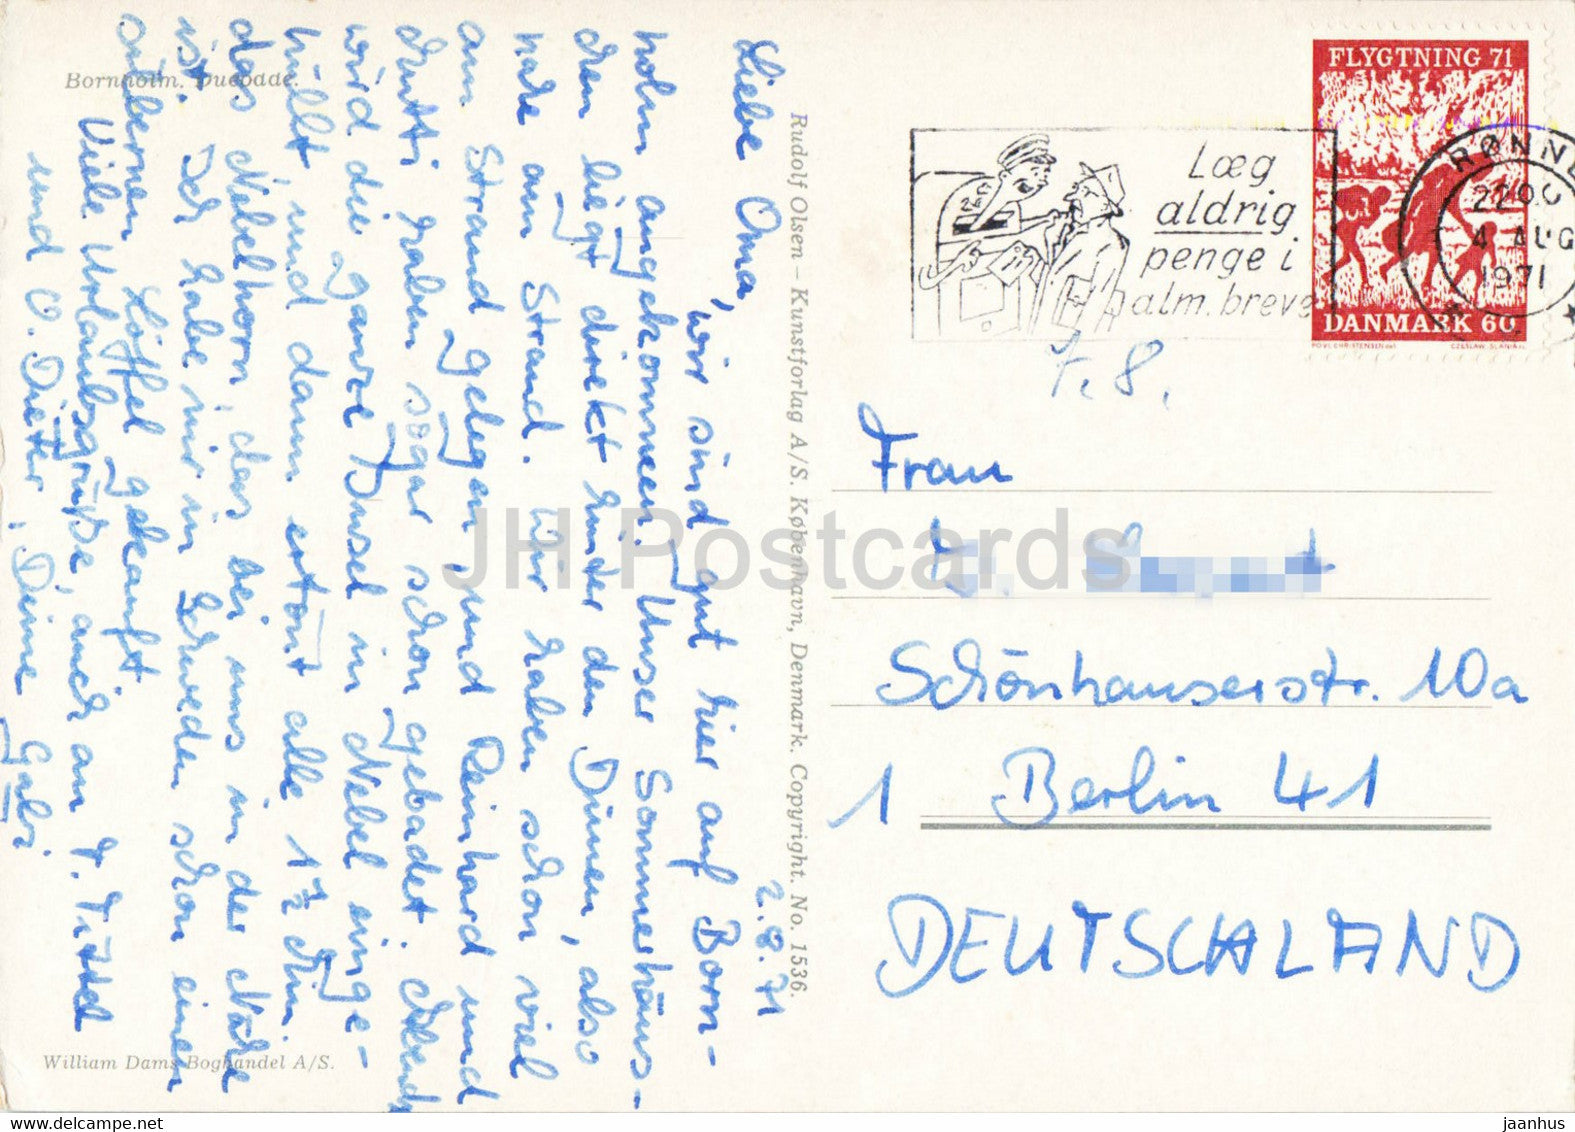 Bornholm. Dueodde.
2.8.71
Liebe Oma,
wir sind gut hier auf Born-
holm angekommen. Unser Sommerhäus-
chen liegt direkt hinter den Dünen, also
nahe am Strand. Wir haben schon viel
am Strand gelegen, und Reinhard und
Mutti haben sogar schon gebadet. Abends
wird die ganze Insel in Nebel einge-
hüllt, und dann ertönt alle 1½ Min.
das Nebelhorn, das bei uns in der Nähe
ist. Ich habe mir in Schweden schon einen
silbernen Löffel gekauft.
Viele Urlaubsgrüße, auch an
und O. Dieter, Deine Gabi
William Dams Boghandel A/S.
Rudolf Olsen – Kunstforlag A/S. København, Denmark. Copyright. No. 1536.
Læg
aldrig
penge i
alm. breve
FLYGTNING 71
DANMARK 60
POVL CHRISTENSEN del.
CZESLAW SLANIA sc.
RØNNE
4 AUG
1971
7.8.
Frau
Schönhauserstr. 10a
1 Berlin 41
DEUTSCHLAND
JH Postcards
www.delcampe.net
jaanhus